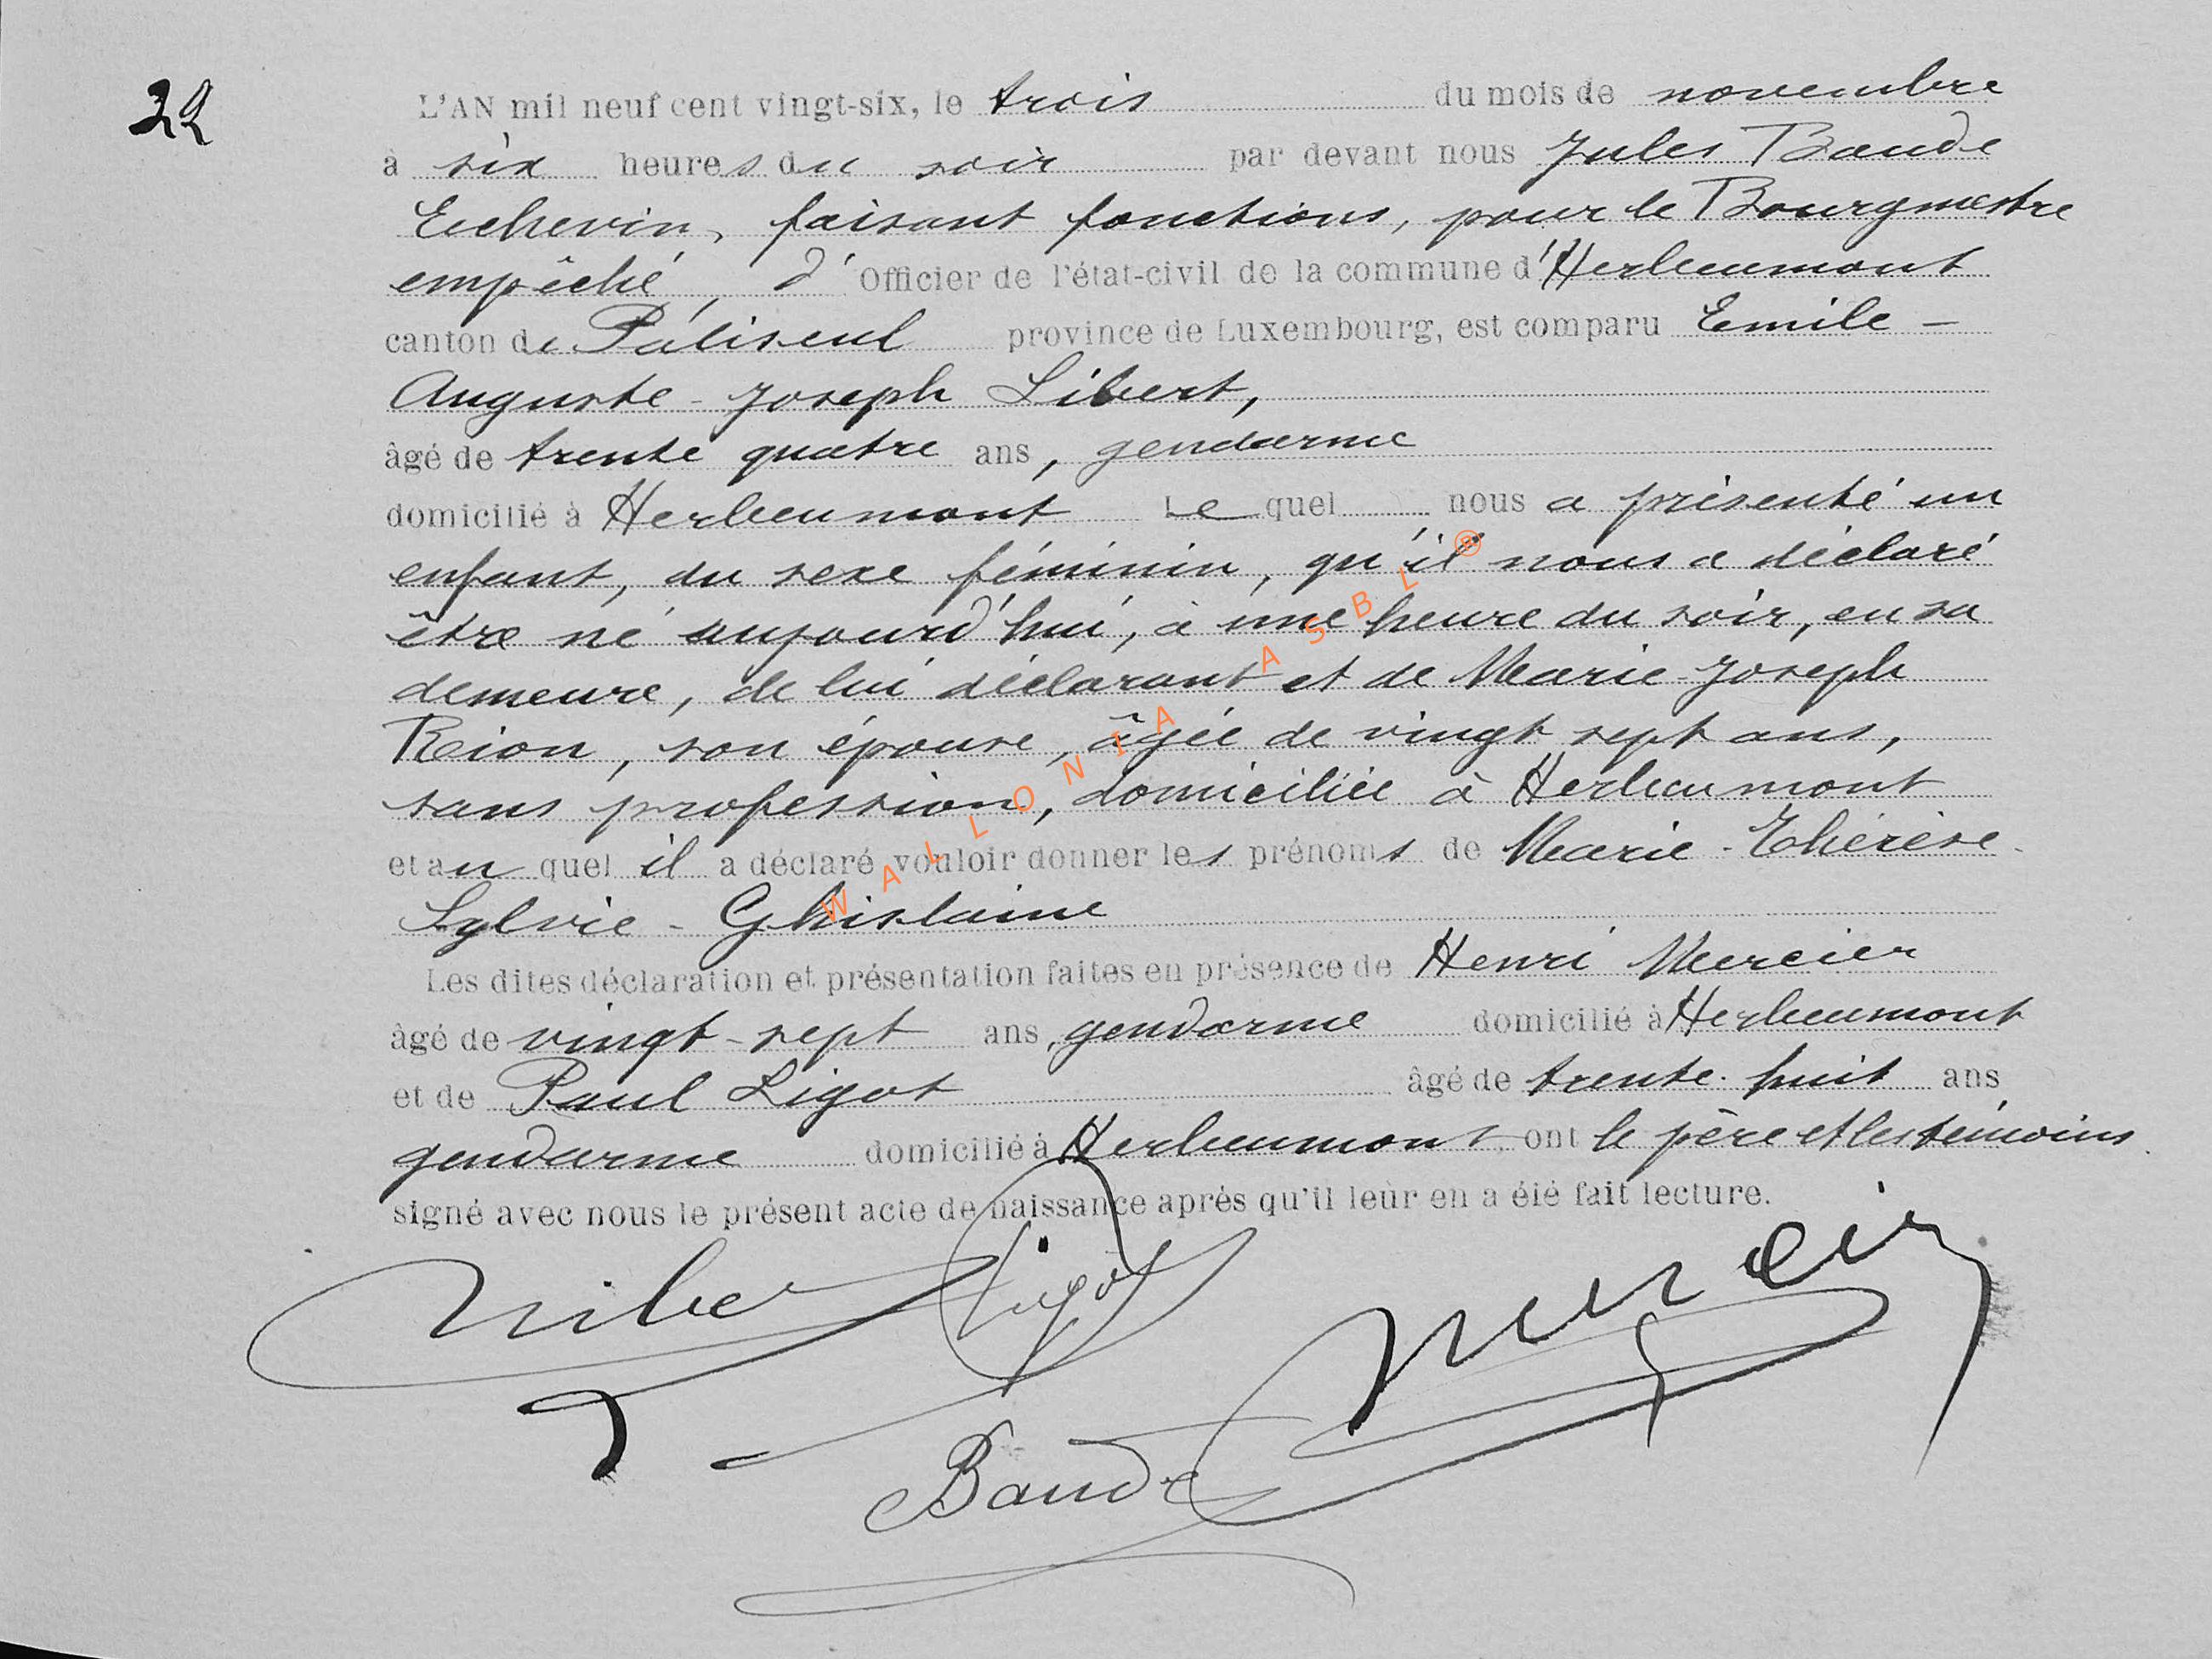 22
L'AN mil neuf cent vingt-six, le trois du mois de novembre
à six heures du soir par devant nous Jules Baude
Echevin, faisant fonctions, pour le Bourgmestre
empêché, d' Officier de l'état-civil de la commune d'Herbeumont
canton de Paliseul province de Luxembourg, est comparu Emile -
Auguste - Joseph Libert,
âgé de trente quatre ans, gendarme
domicilié à Herbeumont Le quel nous a présenté un
enfant, du sexe féminin, qu'il nous a déclaré
être né aujourd'hui, à une heure du soir, en sa
demeure, de lui déclarant et de Marie-Joseph
Reion, son épouse, âgée de vingt sept ans,
sans profession, domiciliée à Herbeumont
et au quel il a déclaré vouloir donner les prénoms de Marie - Thérèse -
Sylvie - Ghislaine
Les dites déclaration et présentation faites en présence de Henri Mercier
âgé de vingt-sept ans, gendarme domicilié à Herbeumont
et de Paul Ligot âgé de trente-huit ans
gendarme domicilié à Herbeumont, ont le père et les témoins
signé avec nous le présent acte de naissance après qu'il leur en a été fait lecture.
Libert Ligot Mercier
Baude
WALLONIA ASBL ®